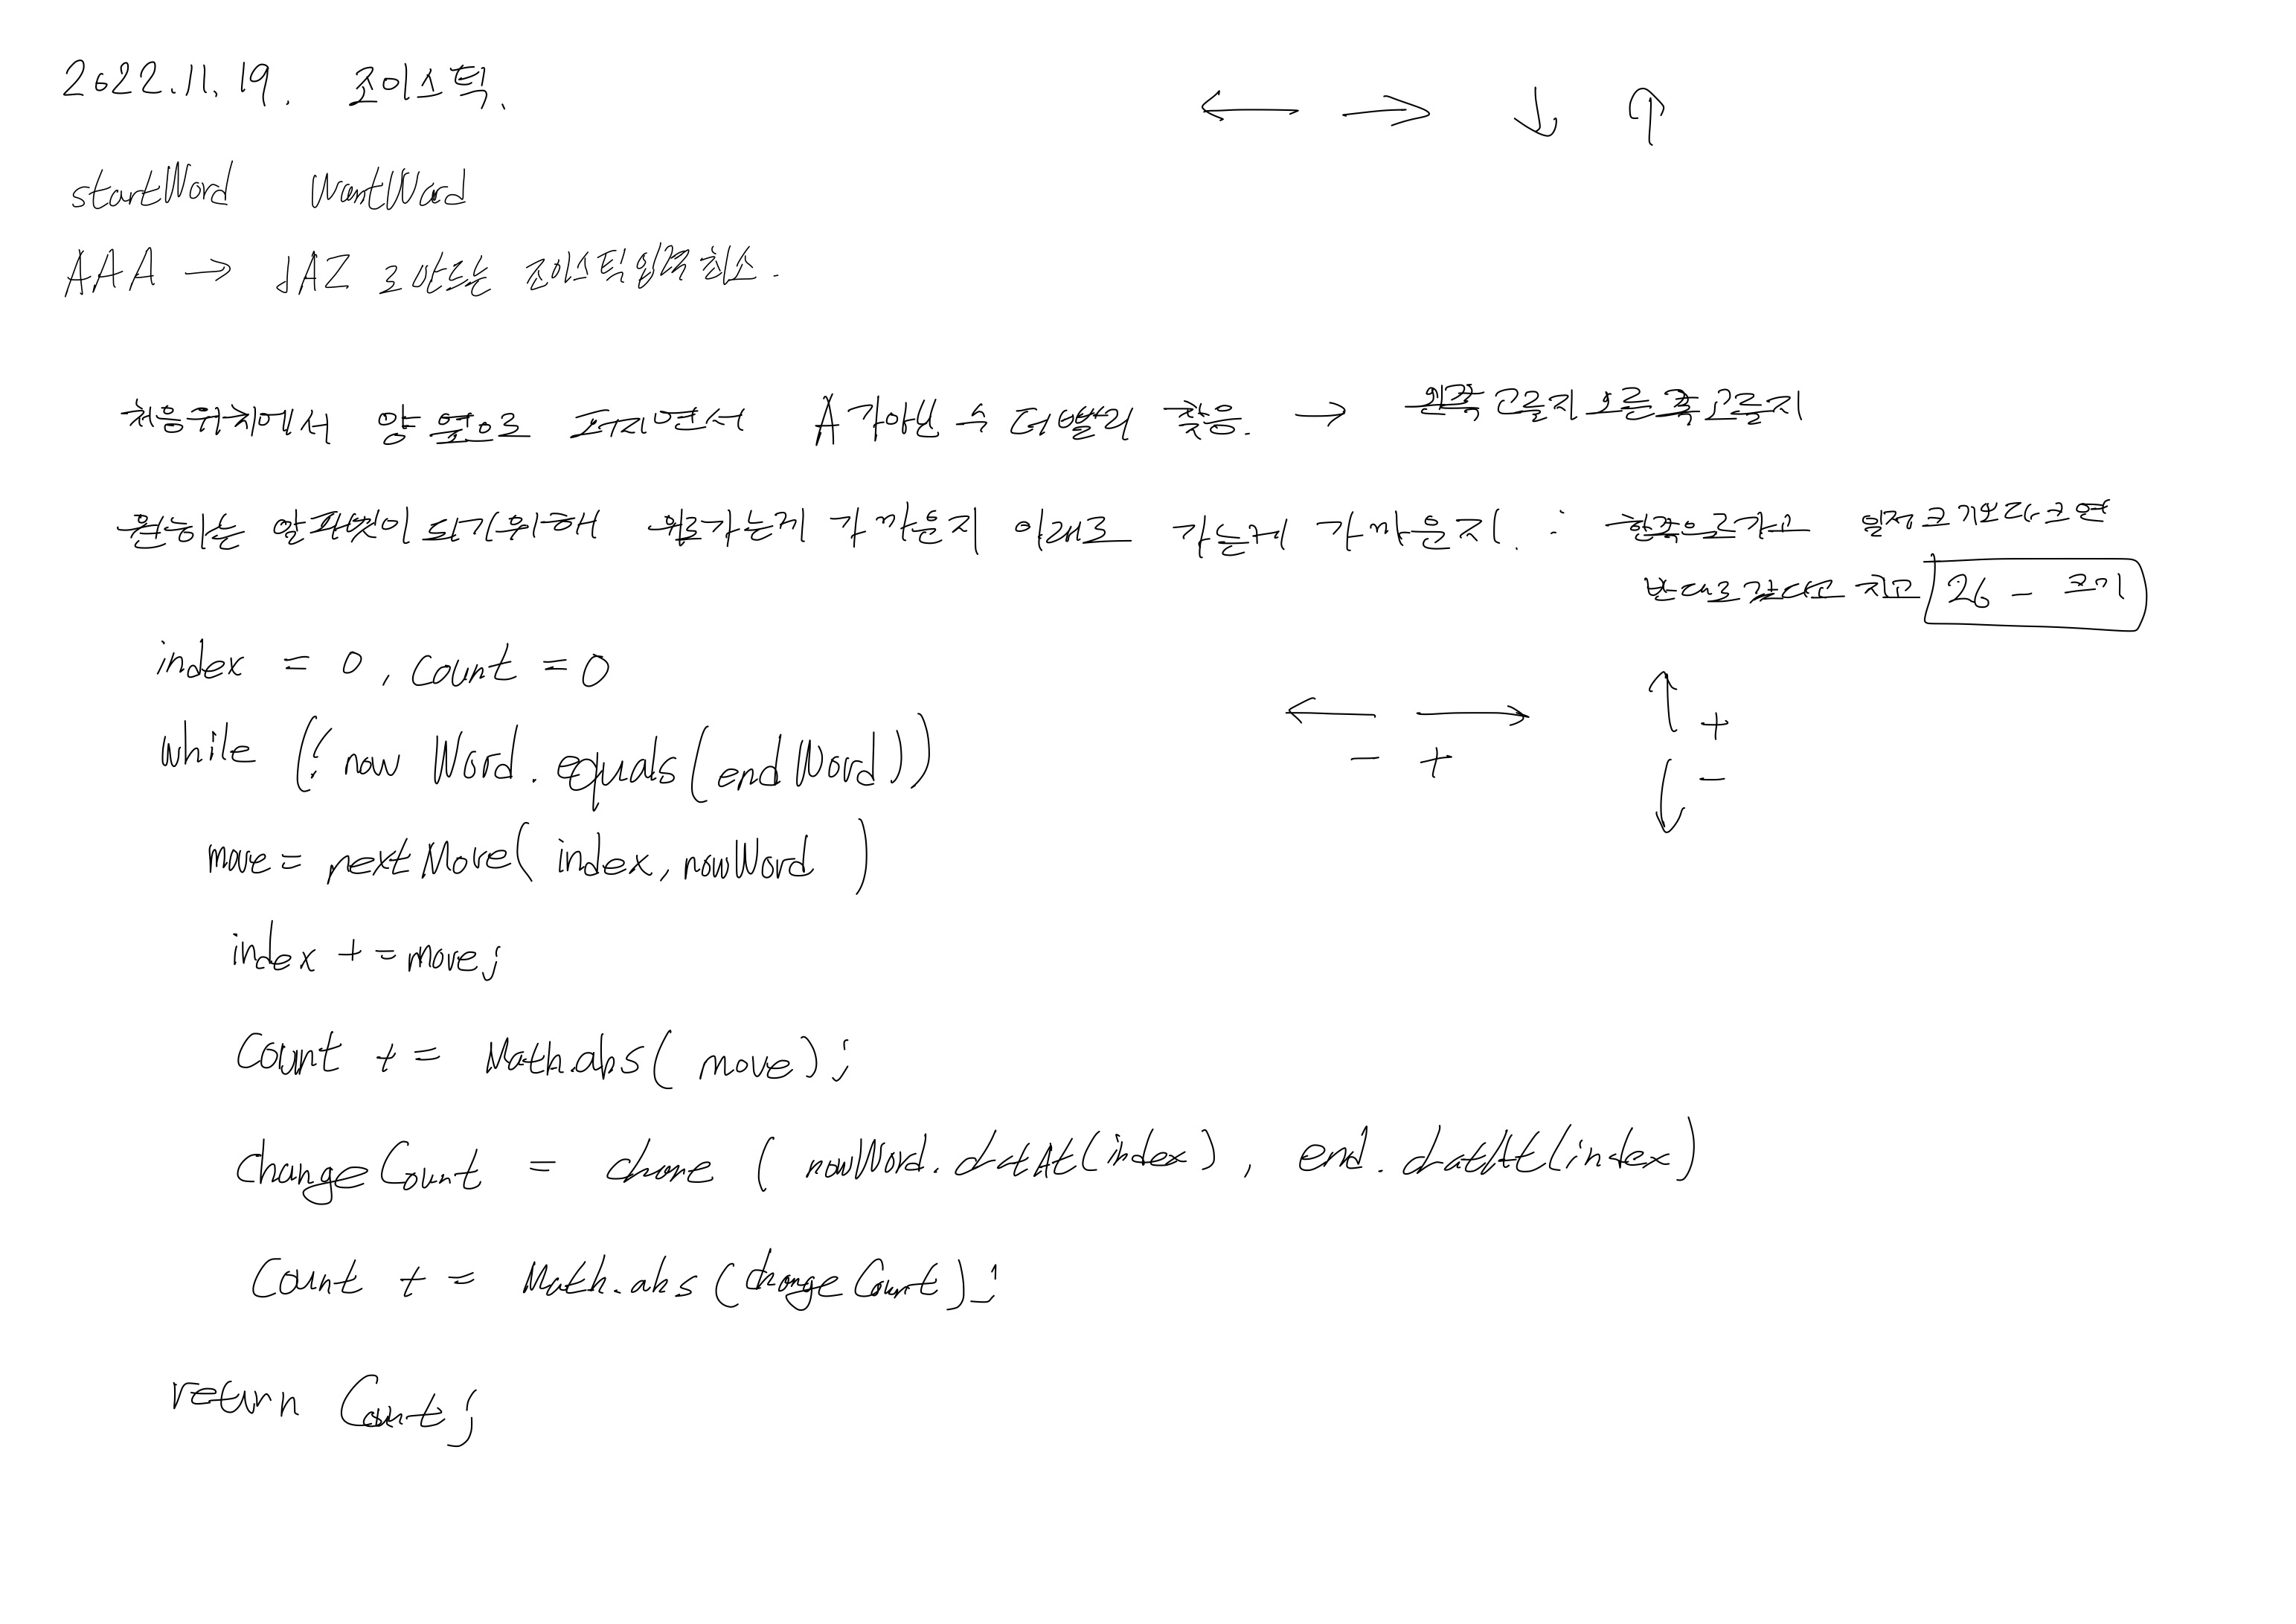 2022.11.19. 조이스틱.
← → ↓ ↑
startWord wantWord
AAA → JAZ 로 만드는 조이스틱 입력 최소.
처음위치에서 양 옆으로 퍼지면서 A가아닌 수 더 빨리 찾음. → 왼쪽 고를지 오른쪽 고를지
원하는 알파벳이 되기위해 위로가는게 가까운지 아래로 가는게 가까운지. : 한쪽으로가고 일정크기보다크면
반대로갔다고 치고 26 - 크기
index = 0, count = 0
while (! now Word. equals(endWord))
← → ↑ +
- + ↓ -
move = nextMove( index, nowWord )
index += move;
Count += Math.abs( move);
changeCount = ( nowWord. charAt(index), end. charAt(index)
Count += Math.abs (changeCount);
return Count;